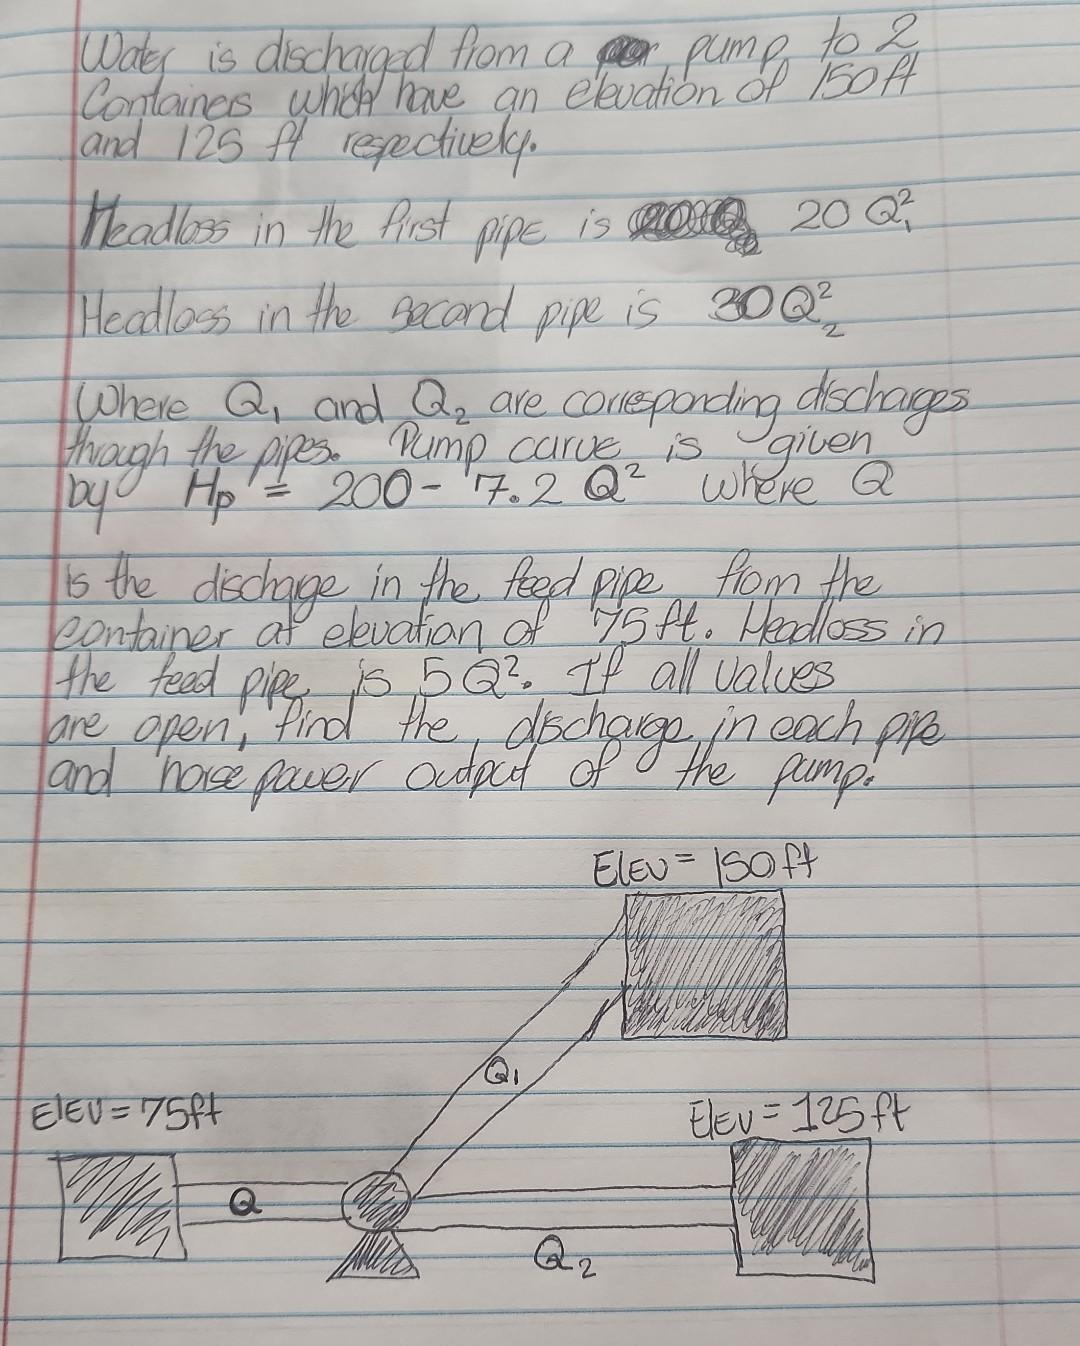 Water is discharged from a pump to 2
Containers which have an elevation of 150ft
and 125 ft respectively.
Headloss in the first pipe is 20 Q₁²
Headloss in the second pipe is 30Q₂²
Where Q₁ and Q₂ are corresponding discharges
through the pipes. Pump curve is given
by Hp = 200 - 7.2 Q² where Q
is the discharge in the feed pipe from the
container at elevation of 75ft. Headloss in
the feed pipe is 5Q². If all values
are open, find the discharge in each pipe
and horse power output of the pump.
Elev = 150ft
Q₁
Elev = 75ft
Elev = 125ft
Q
Q₂